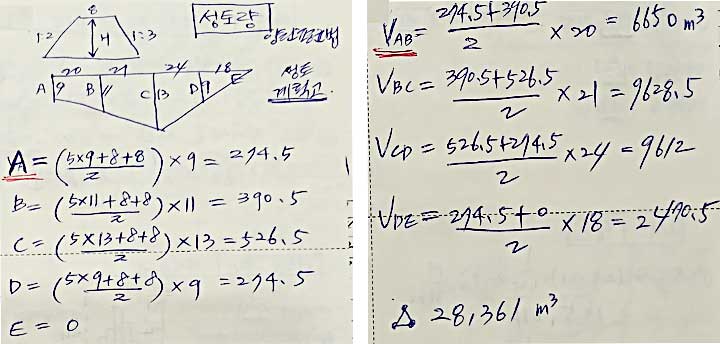 8
1:2
H
1:3
성토량
양단면평균법
20
21
24
18
A
9
B
11
C
13
D
E
성토
계획고
A = (5×9+8+8/2) × 9 = 274.5
B = (5×11+8+8/2) × 11 = 390.5
C = (5×13+8+8/2) × 13 = 526.5
D = (5×9+8+8/2) × 9 = 274.5
E = 0
V_AB = 274.5+390.5/2 × 20 = 6650 m³
V_BC = 390.5+526.5/2 × 21 = 9628.5
V_CD = 526.5+274.5/2 × 24 = 9612
V_DE = 274.5+0/2 × 18 = 2470.5
∴ 28,361 m³